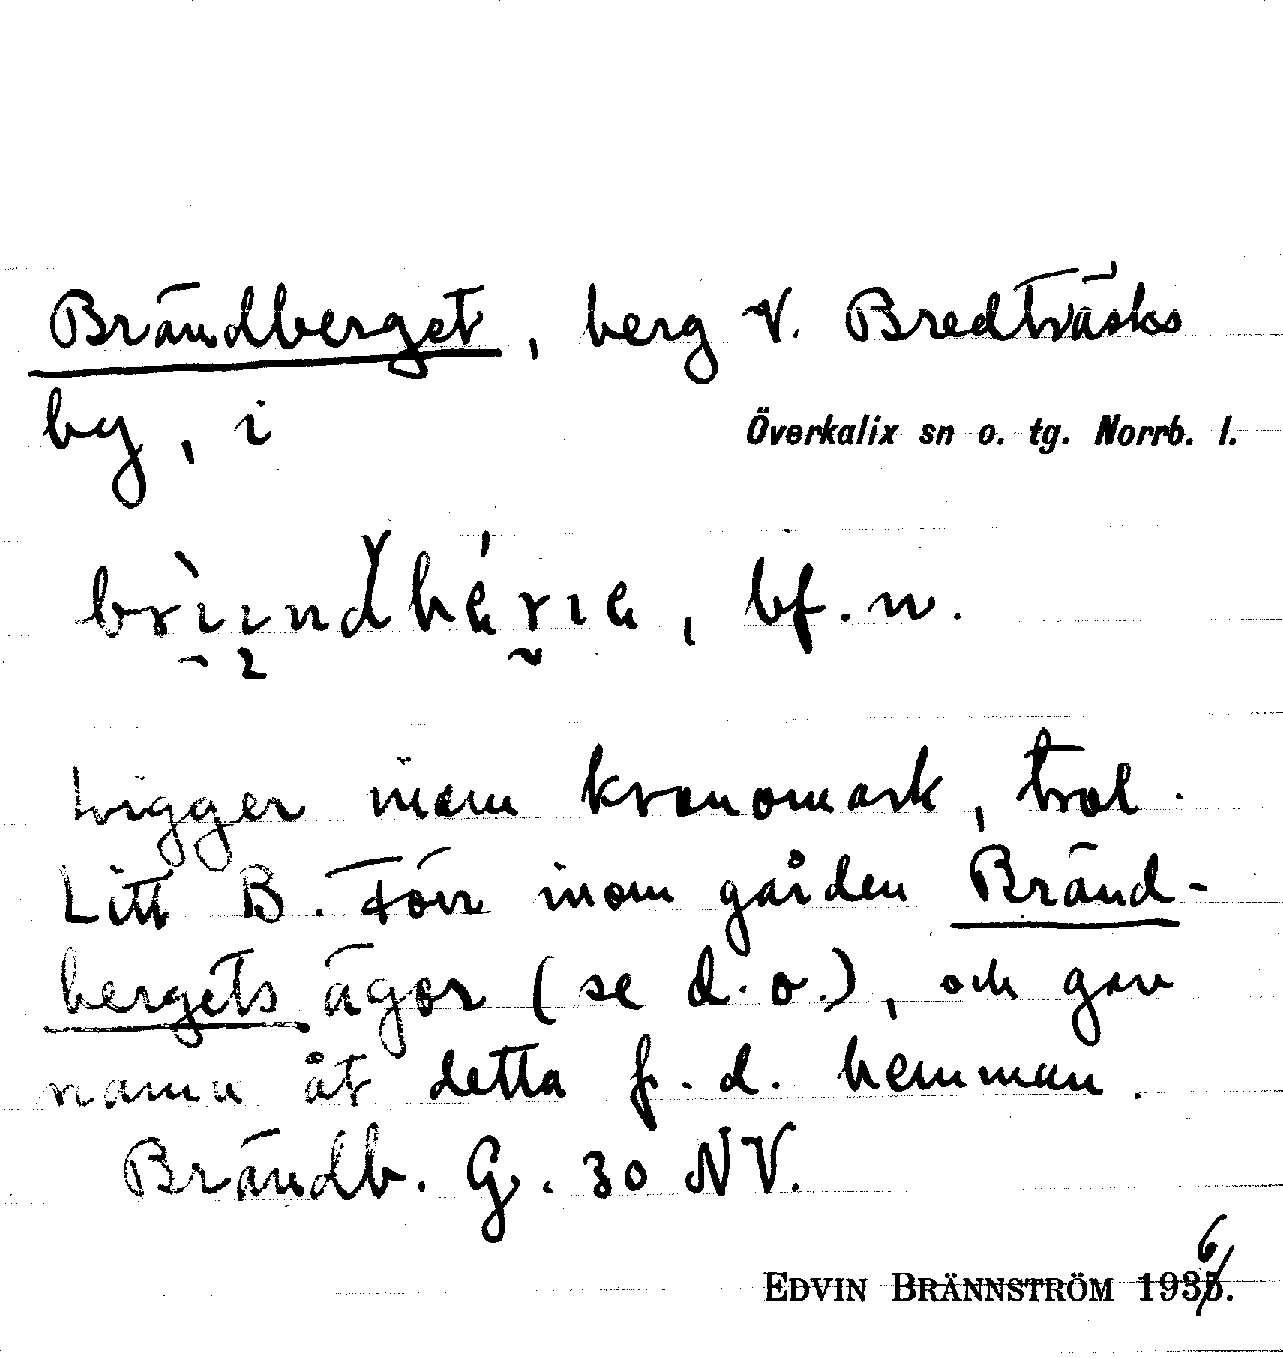 Brändberget, berg V. Bredträsks
by, i
Överkalix sn o. tg. Norrb. l.
bf. n.
Ligger inom kronomark, trol.
Litt B. Förr inom gården Bränd-
bergets ägor (se d. o.), och gav
namn åt detta f. d. hemman.
Brändb. G. 30 NV.
EDVIN BRÄNNSTRÖM 1936.